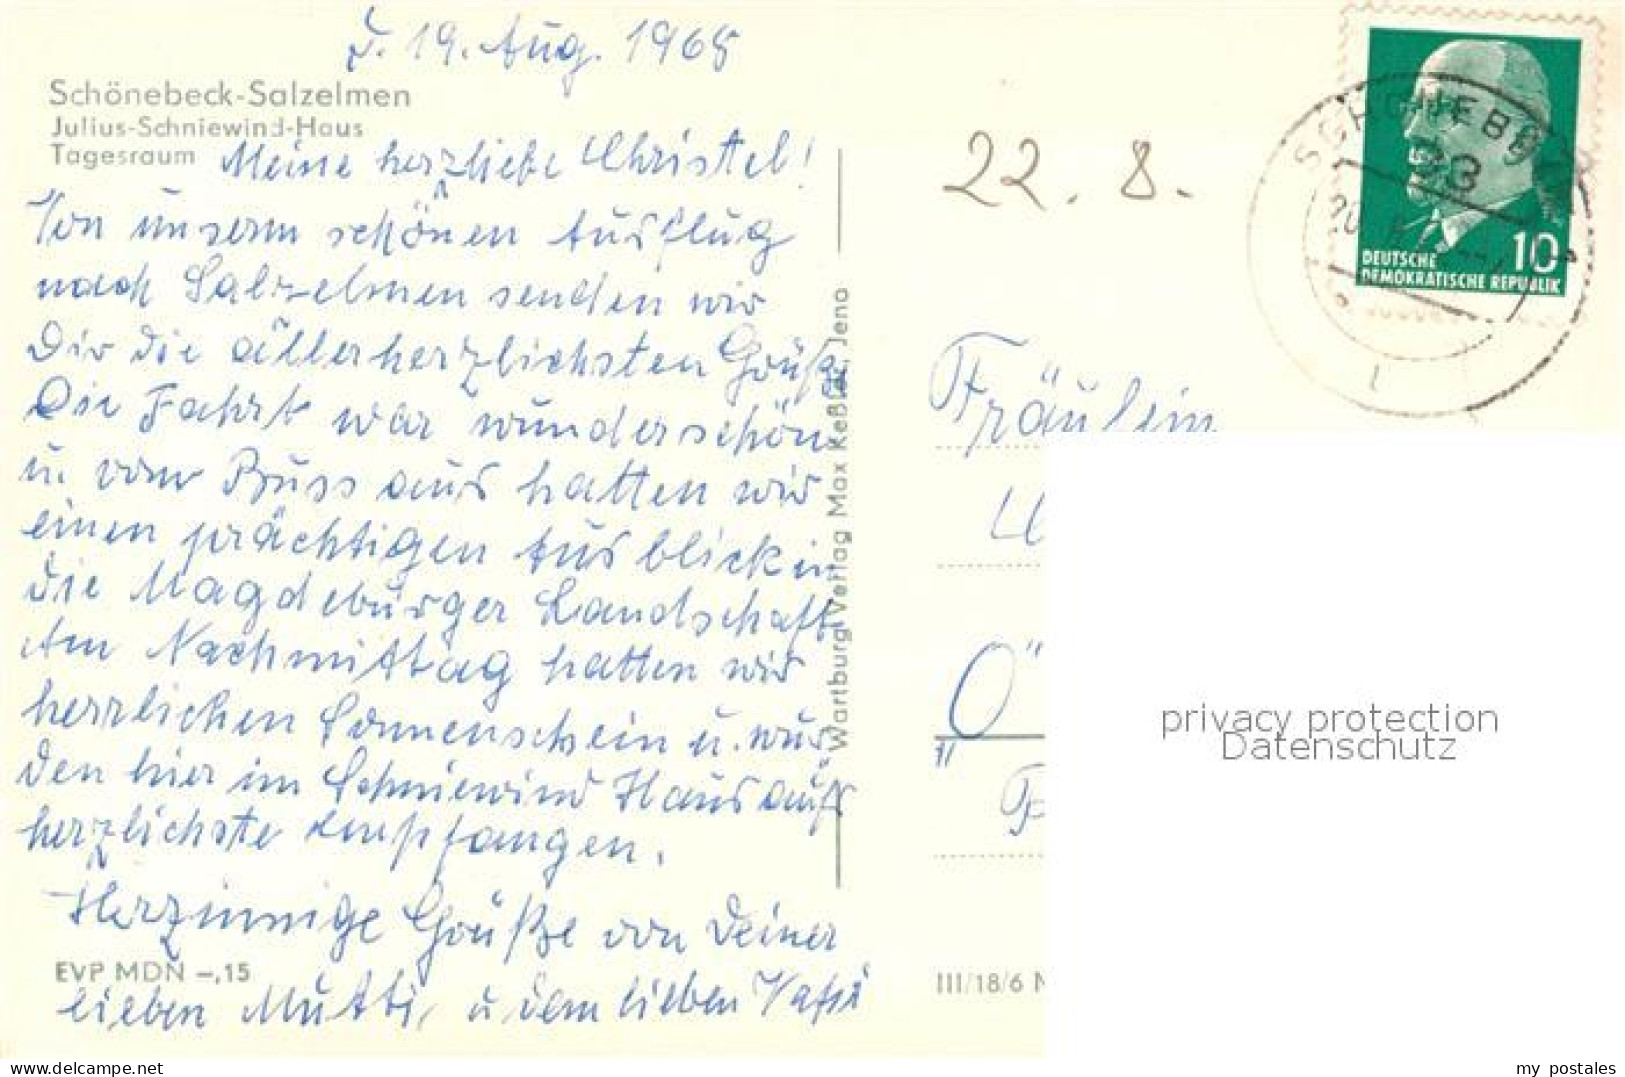 d. 19. Aug. 1968
Schönebeck-Salzelmen
Julius-Schniewind-Haus
Tagesraum
Meine herzliebe Christel!
Von unserm schönen Ausflug
nach Salzelmen senden wir
Dir die allerherzlichsten Grüße
Die Fahrt war wunderschön
u. vom Buss aus hatten wir
einen prächtigen Ausblick in
die Magdeburger Landschaft
Am Nachmittag hatten wir
herrlichen Sonnenschein u. wur
den hier im Schniewind Haus aufs
herzlichste empfangen.
Herzinnige Grüße von Deiner
lieben Mutti, u dem lieben Vati
EVP MDN -,15
Wartburg Verlag Max Keßler, Jena
22. 8.
DEUTSCHE
DEMOKRATISCHE REPUBLIK
10
SCHÖNEBECK
33
Fräulein
III/18/6
privacy protection
Datenschutz
delcampe.net
my_postales